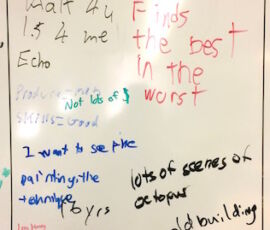 Walt 4 u
1.5 4 me
Echo
Finds
the best
in the
worst
Not lots of $
skills = Good
I want to see
painting, the
technique
6 yrs
lots of scenes of
octopus
old building